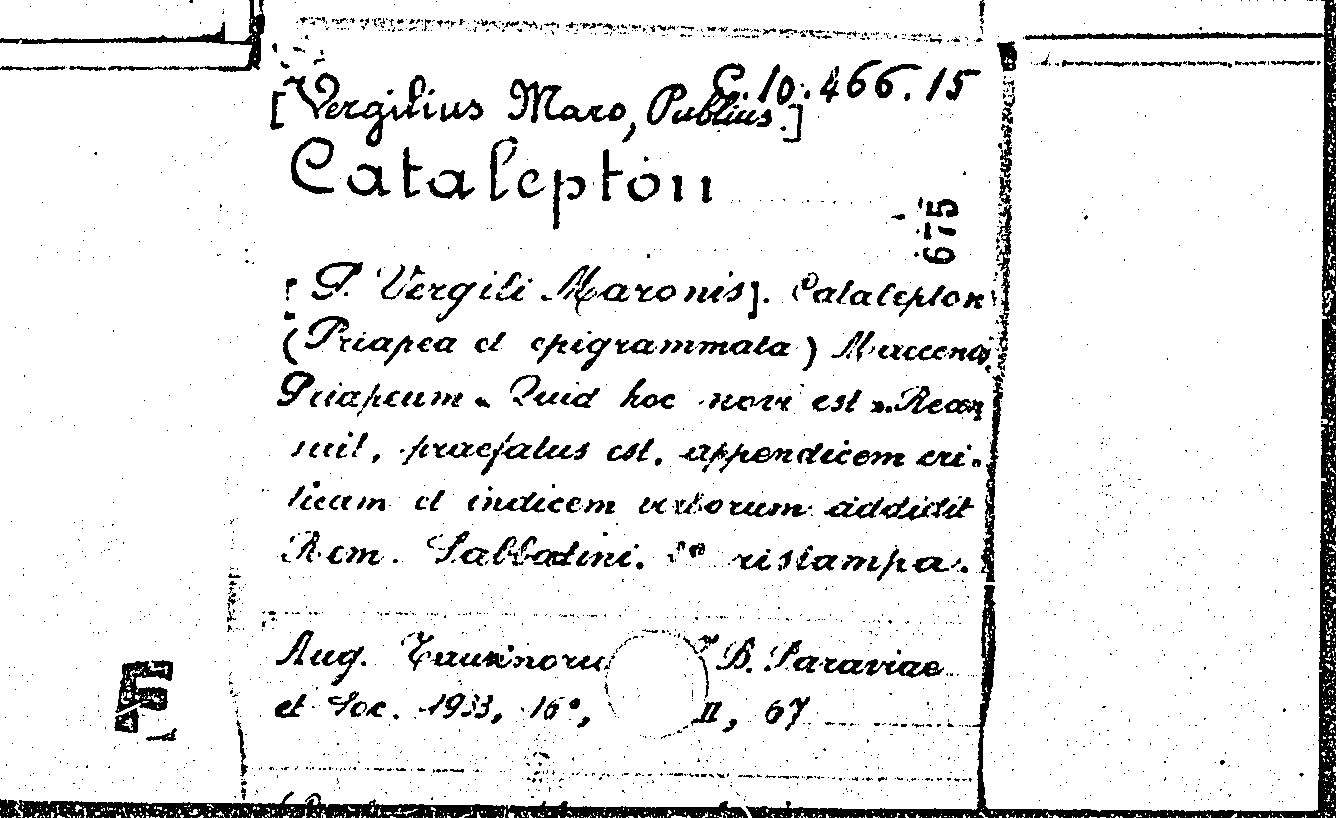 C.10.466.15
[Vergilius Maro, Publius.]
Catalepton
675
[P. Vergili Maronis]. Catalepton
(Priapea et epigrammata) Maecenas
Priapeum « Quid hoc novi est ». Recen
suit, praefatus est, appendicem cri-
ticam et indicem verborum addidit
Rem. Sabbadini. ristampa.
Aug. Taurinoru B. Paraviae
et Soc. 1933, 16°, II, 67
F